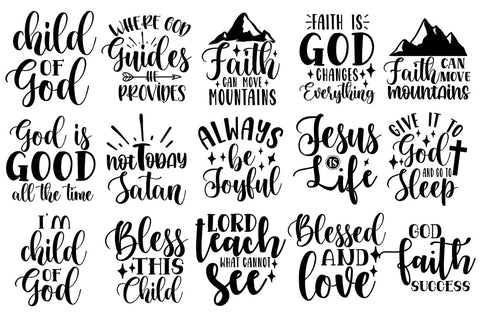 child
OF
God
WHERE GOD
Guides
HE
PROVIDES
Faith
CAN MOVE
MOUNTAINS
FAITH IS
GOD
CHANGES
Everything
Faith CAN MOVE
mountains
God is
GOOD
all the time
not TODAY
Satan
ALWAYS
be
Joyful
Jesus
IS
Life
GIVE IT TO
God
AND GO TO
Sleep
I'M
child
OF
God
Bless
THIS
Child
LORD
teach
WHAT CANNOT
See
Blessed
AND
love
GOD
faith
SUCCESS